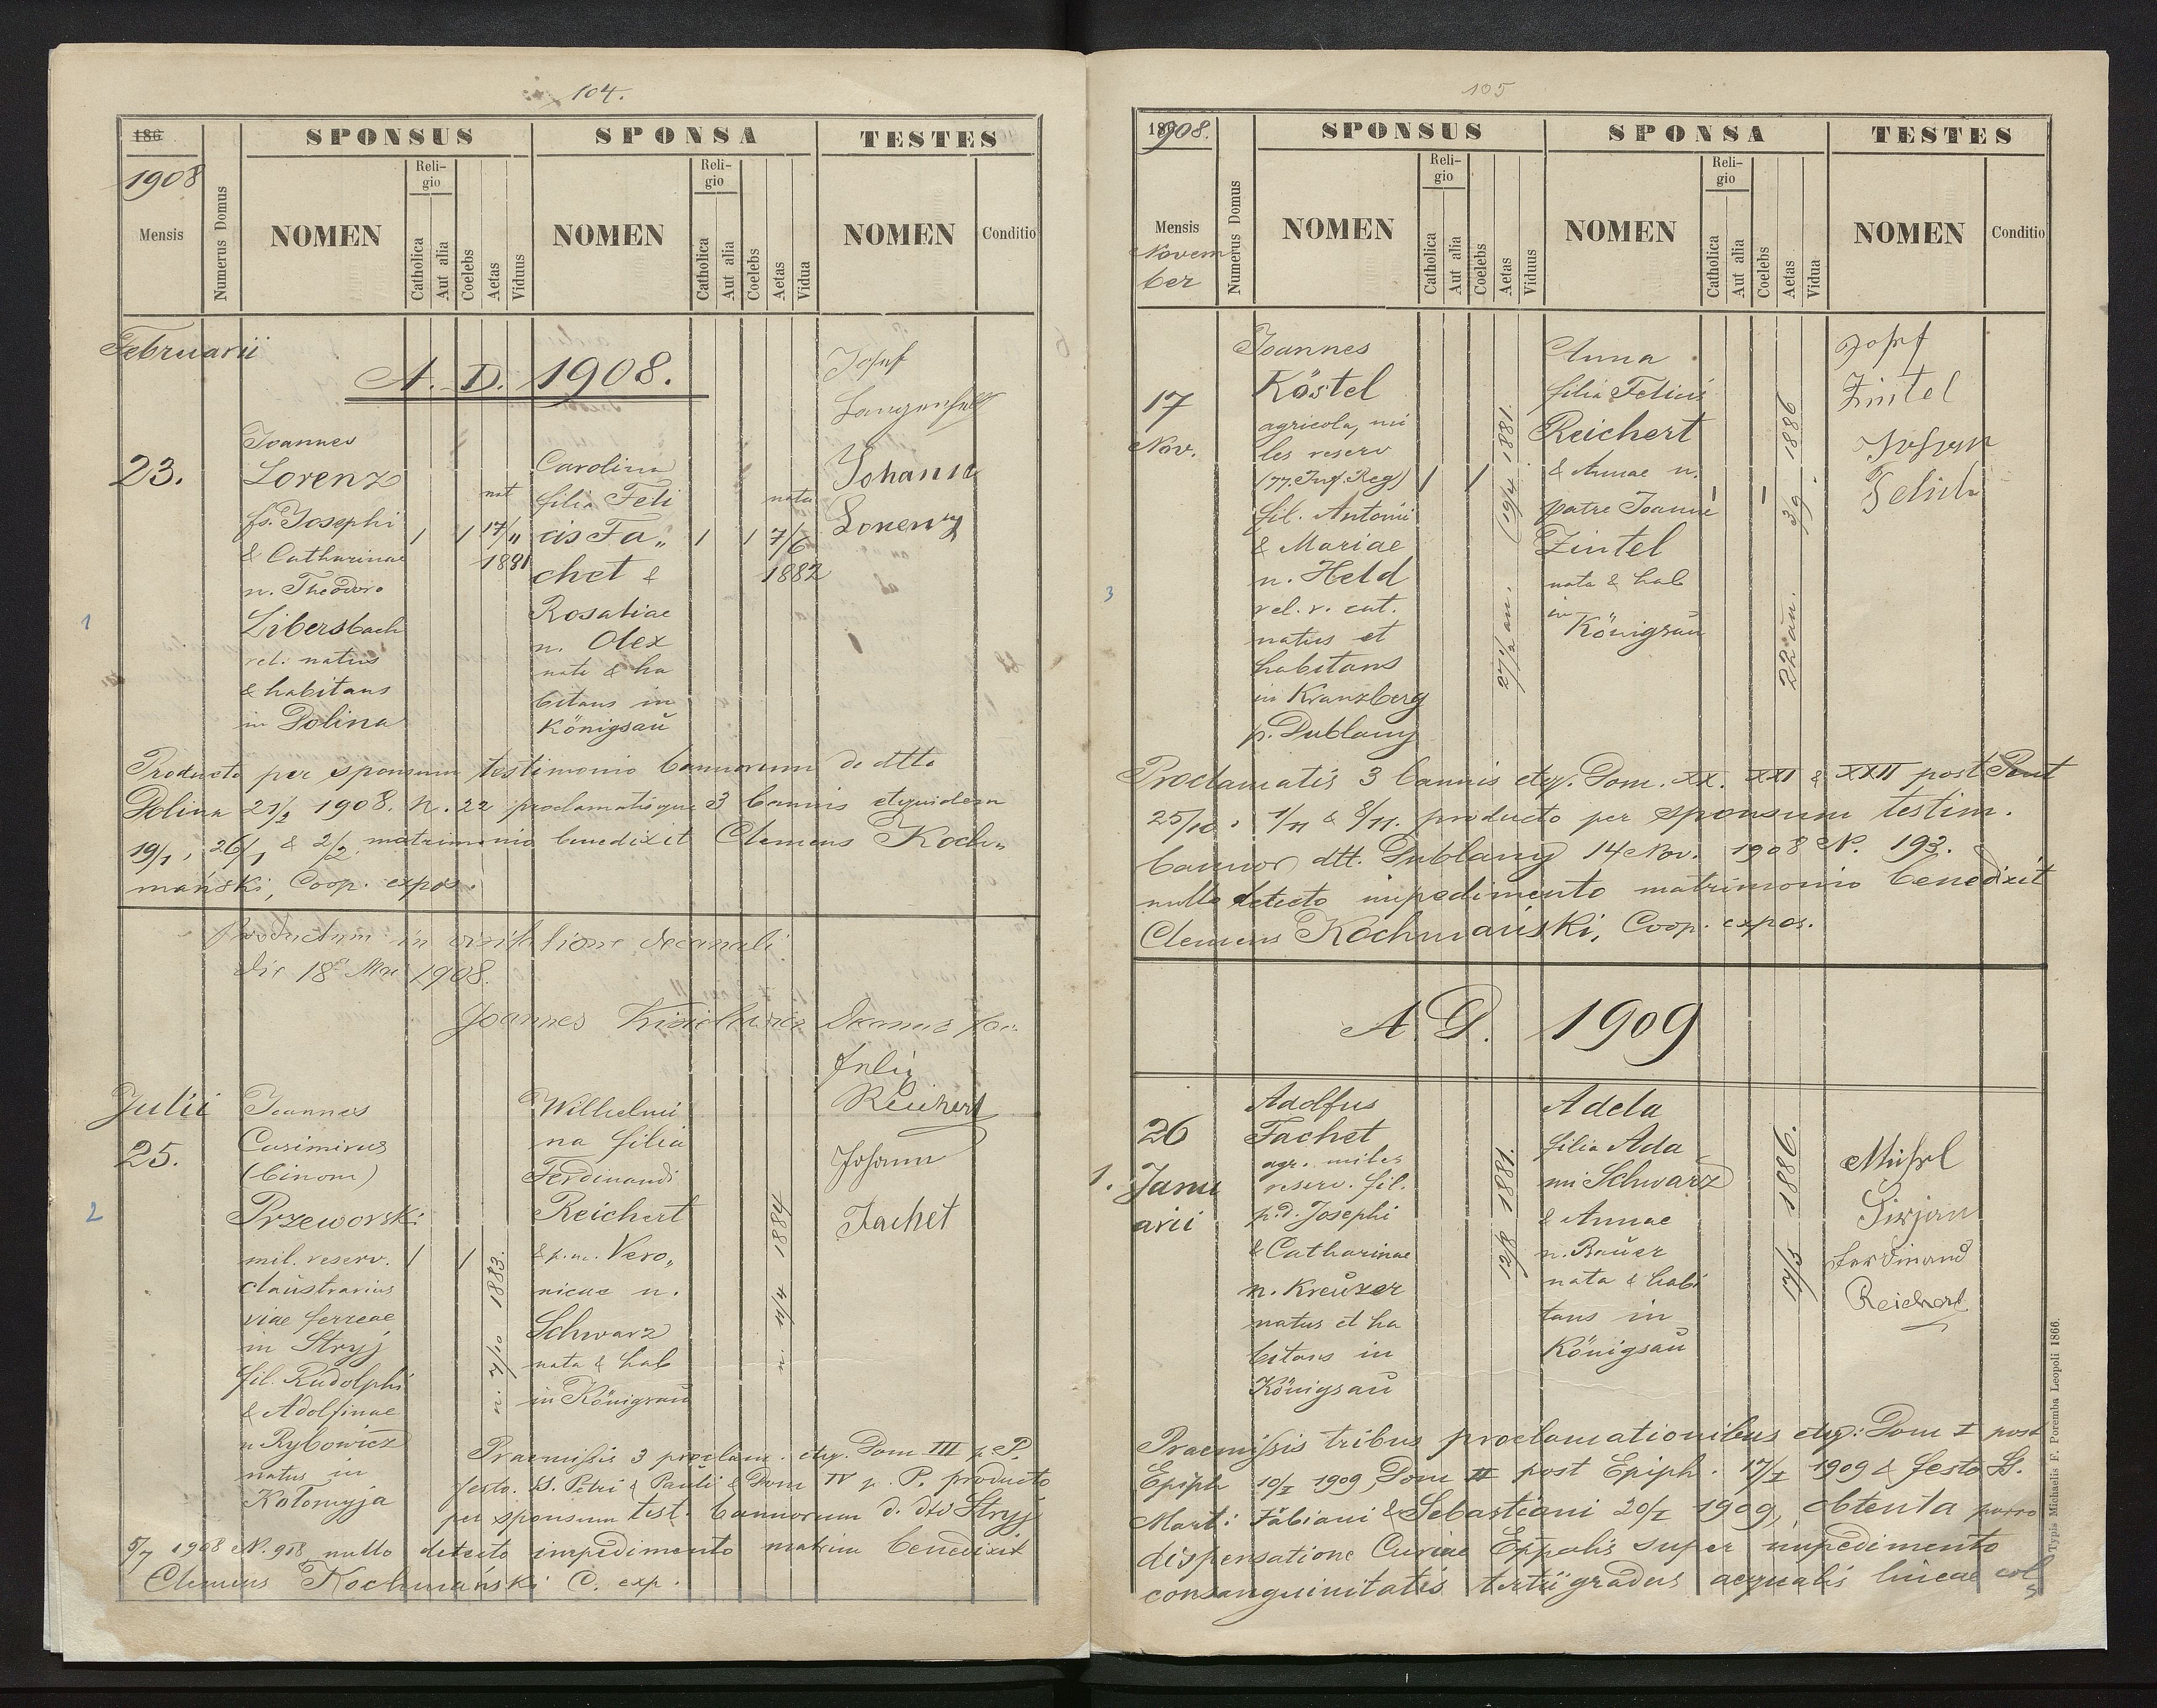 104.
186
1908
Mensis
Numerus Domus
SPONSUS
NOMEN
Reli-
gio
Catholica
Aut alia
Coelebs
Aetas
Viduus
SPONSA
NOMEN
Reli-
gio
Catholica
Aut alia
Coelebs
Aetas
Vidua
TESTES
NOMEN
Conditio
Februarii
A. D. 1908.
23.
1
Joannes
Lorenz
fs. Josephi
& Catharinae
n. Theodoro
Libersbach
rel. natus
& habitans
in Dolina
1
1
nat
17/11
1881
Carolina
filia Feli
cis Fa„
chet &
Rosaliae
n. Olex
nata & ha
bitans in
Königsaŭ
1
1
nata
7/6
1882
Josef
Langenfeld
Johann
Lorenz
Producto per sponsum testimonio bannorum de dtto
Dolina 21/2 1908. N. 22 proclamatisque 3 bannis etquidem
19/1, 26/1 & 2/2 matrimonio benedixit Clemens Koch„
mański, Coop. expos.
Productum in visitatione decanali
die 18 Mai 1908.
Joannes
Julii
25.
2
Joannes
Casimirus
(binom)
Przeworski
mil. reserv.
claŭstrarius
viae ferreae
in Stryj
fil. Rŭdolphi
& Adolfinae
n Rybowicz
natus in
Kołomyja
1
1
n. 7/10 1883.
Wilhelmi
na filia
Ferdinandi
Reichert
& p. m. Vero„
nicae n.
Schwarz
nata & hab
in Königsaŭ
n. 4/4 1884
Julia
Reichert
Johann
Fachet
Praemissis 3 proclam. etq. Dom III p. P.
festo. SS. Petri & Paŭli & Dom IV p. P. producto
per sponsum test. bannorum d. dto Stryj
5/7 1908 N. 918 nullo detecto impedimento matrim benedixit
Clemens Kochmański C. exp.
105
1908.
Mensis
Novem
ber
Numerus Domus
SPONSUS
NOMEN
Reli-
gio
Catholica
Aut alia
Coelebs
Aetas
Viduus
SPONSA
NOMEN
Reli-
gio
Catholica
Aut alia
Coelebs
Aetas
Vidua
TESTES
NOMEN
Conditio
17
Nov.
3
Joannes
Köstel
agricola, mi
les reserv
(77. Inf. Reg)
fil. Antonii
& Mariae
n. Held
rel. r. cat.
natus et
habitans
in Kranzberg
p. Dublany
1
1
27½ an. (19/4 1881
Anna
filia Felicis
Reichert
& Annae n.
patre Joanne
Zintel
nata & hab
in
Königsaŭ
1
1
22 an. 3/9. 1886
Josef
Zintel
Johann
Proclamatis 3 bannis etq. Dom. XX. XXI & XXII post Pent
25/10. 1/11 & 8/11. producto per sponsum testim.
bannor dtt. Dublany 14 Nov. 1908 N. 193.
nullo detecto impedimento matrimonio benedixit
Clemens Kochmański, Coop. expos.
A. D. 1909
1.
26
Janu
arii
Adolfus
Fachet
agr. miles
reserv. fil.
p. d. Josephi
& Catharinae
n. Kreŭzer
natus et ha
bitans in
Königsaŭ
12/8 1881.
Adela
filia Ada
mi Schwarz
& Annae
n. Baŭer
nata & habi
tans in
Königsaŭ
17/5 1886.
Michel
Ferdinand
Reichert
Praemissis tribus proclamationibus etq: Dom I post
Epiph 10/I 1909, Dom II post Epiph. 17/I 1909 & festo SS.
Mart: Fabiani & Sebastiani 20/I 1909, obtenta porro
dispensatione Curiae Eppalis super impedimento
consanguinitatis tertii gradus aequalis lineae col
Typis Michaelis F. Poremba Leopoli 1866.